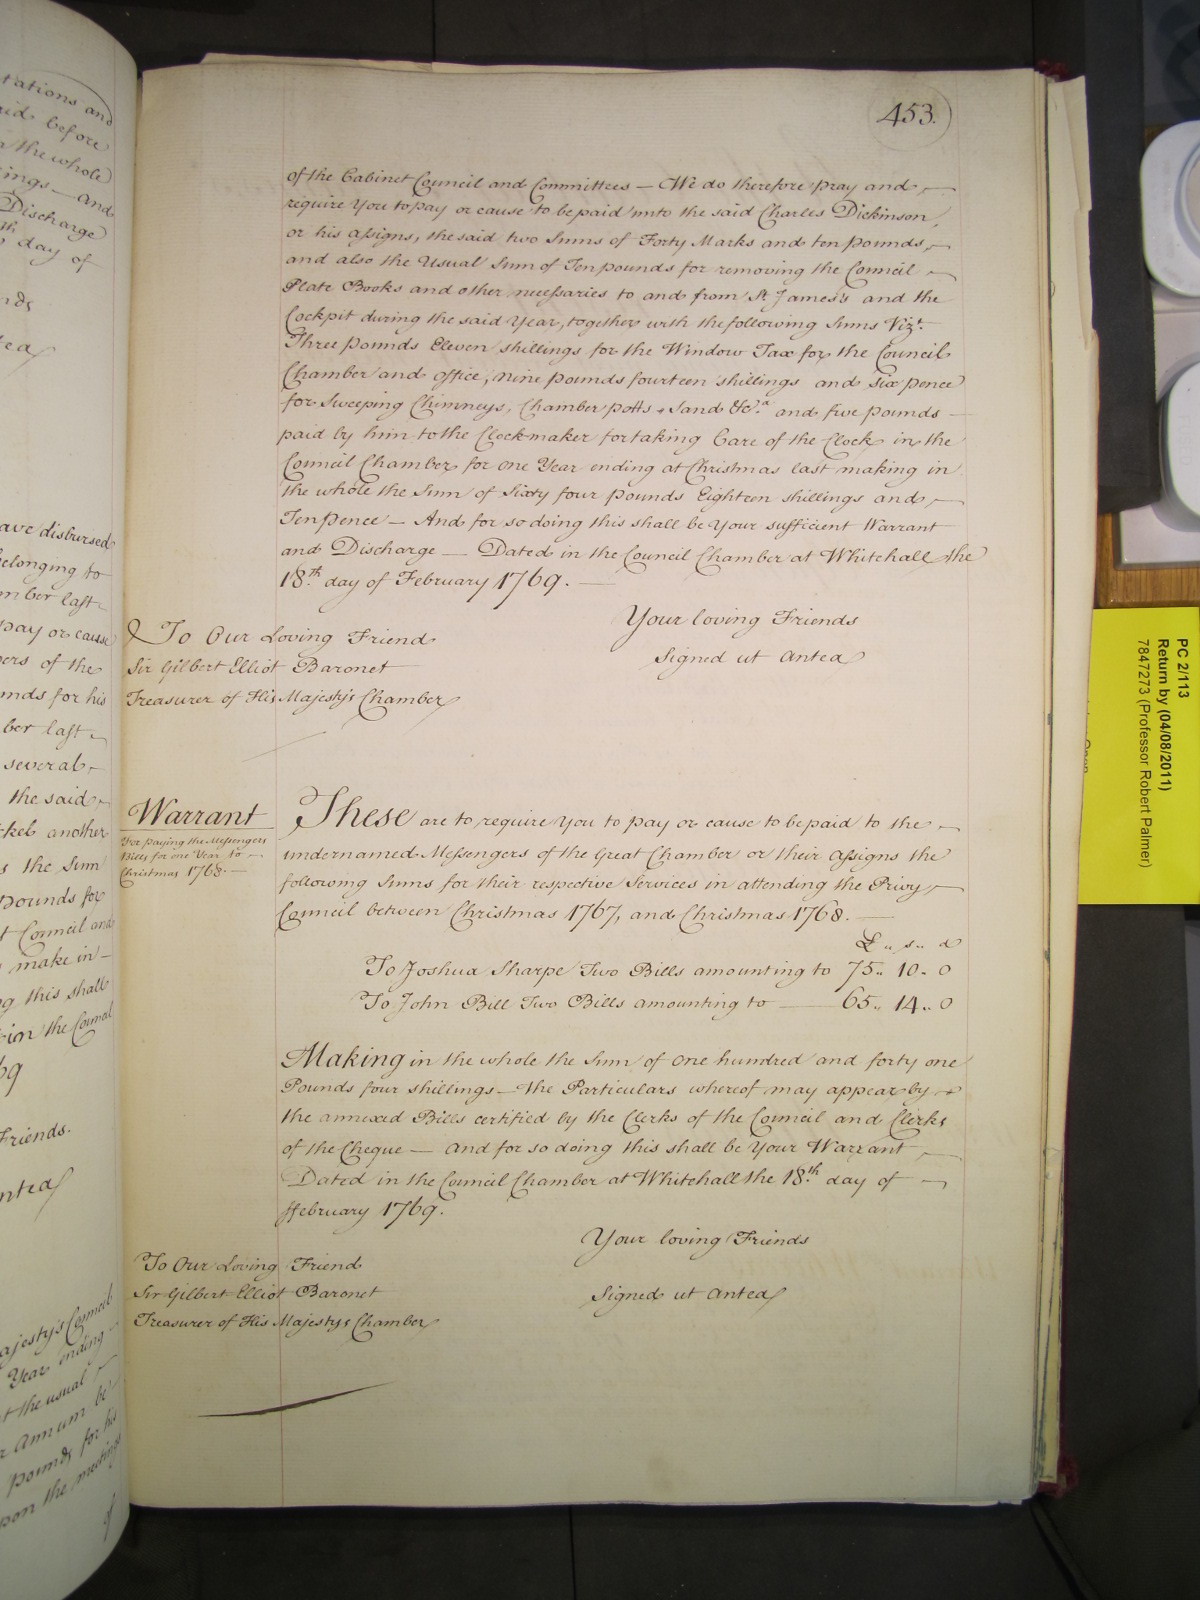 tations and
aid before
n the whole
ings — and
Discharge
th day of
nds
tea
ave disbursed
belonging to
mber last
pay or cause
pers of the
unds for his
ber last
several
the said
kel another
s the Sum
pounds for
t Council and
make in —
g this shall
in the Council
69
Friends.
ntea
ajesty's Council
Year ending
t the usual
r Annum be
pounds for his
pon the meetings
of
453.
of the Cabinet Council and Committees — We do therefore pray and
require You to pay or cause to be paid unto the said Charles Dickinson,
or his assigns, the said two Sums of Forty Marks and ten pounds,
and also the Usual Sum of Ten pounds for removing the Council
Plate Books and other necessaries to and from St. James's and the
Cockpit during the said Year, together with the following Sums Vizt.
Three pounds Eleven shillings for the Window Tax for the Council
Chamber and office, nine pounds fourteen shillings and six pence
for Sweeping Chimneys, Chamber potts, Sand &c.a and five pounds —
paid by him to the Clockmaker for taking Care of the Clock in the
Council Chamber for one Year ending at Christmas last making in
the whole the Sum of Sixty four pounds Eighteen shillings and
Ten pence — And for so doing this shall be Your sufficient Warrant
and Discharge — Dated in the Council Chamber at Whitehall the
18.th day of February 1769. —
Your loving Friends
Signed ut Antea
To Our Loving Friend
Sir Gilbert Elliot Baronet
Treasurer of His Majesty's Chamber
Warrant
For paying the Messengers
Bills for one Year to —
Christmas 1768. —
These are to require You to pay or cause to be paid to the
undernamed Messengers of the Great Chamber or their Assigns the
following Sums for their respective Services in attending the Privy
Council between Christmas 1767, and Christmas 1768. —
£ .. s .. d
To Joshua Sharpe Two Bills amounting to 75 .. 10 .. 0
To John Bill Two Bills amounting to — 65 .. 14 .. 0
Making in the whole the Sum of one hundred and forty one
Pounds four shillings — the Particulars whereof may appear by
the annexed Bills certified by the Clerks of the Council and Clerks
of the Cheque — And for so doing this shall be Your Warrant
Dated in the Council Chamber at Whitehall the 18.th day of —
ffebruary 1769.
Your loving Friends
Signed ut Antea
To Our Loving Friend
Sir Gilbert Elliot Baronet
Treasurer of His Majesty's Chamber
PC 2/113
Return by (04/08/2011)
7847273 (Professor Robert Palmer)